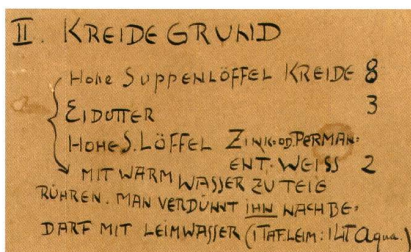 II. KREIDEGRUND
HOHE SUPPENLÖFFEL KREIDE 8
EIDOTTER 3
HOHE S. LÖFFEL ZINK.OD.PERMAN-
ENT. WEISS 2
MIT WARM WASSER ZU TEIG
RÜHREN. MAN VERDÜNNT IHN NACH BE-
DARF MIT LEIMWASSER (1 TAF. LEIM : 1 LIT Aqua.)